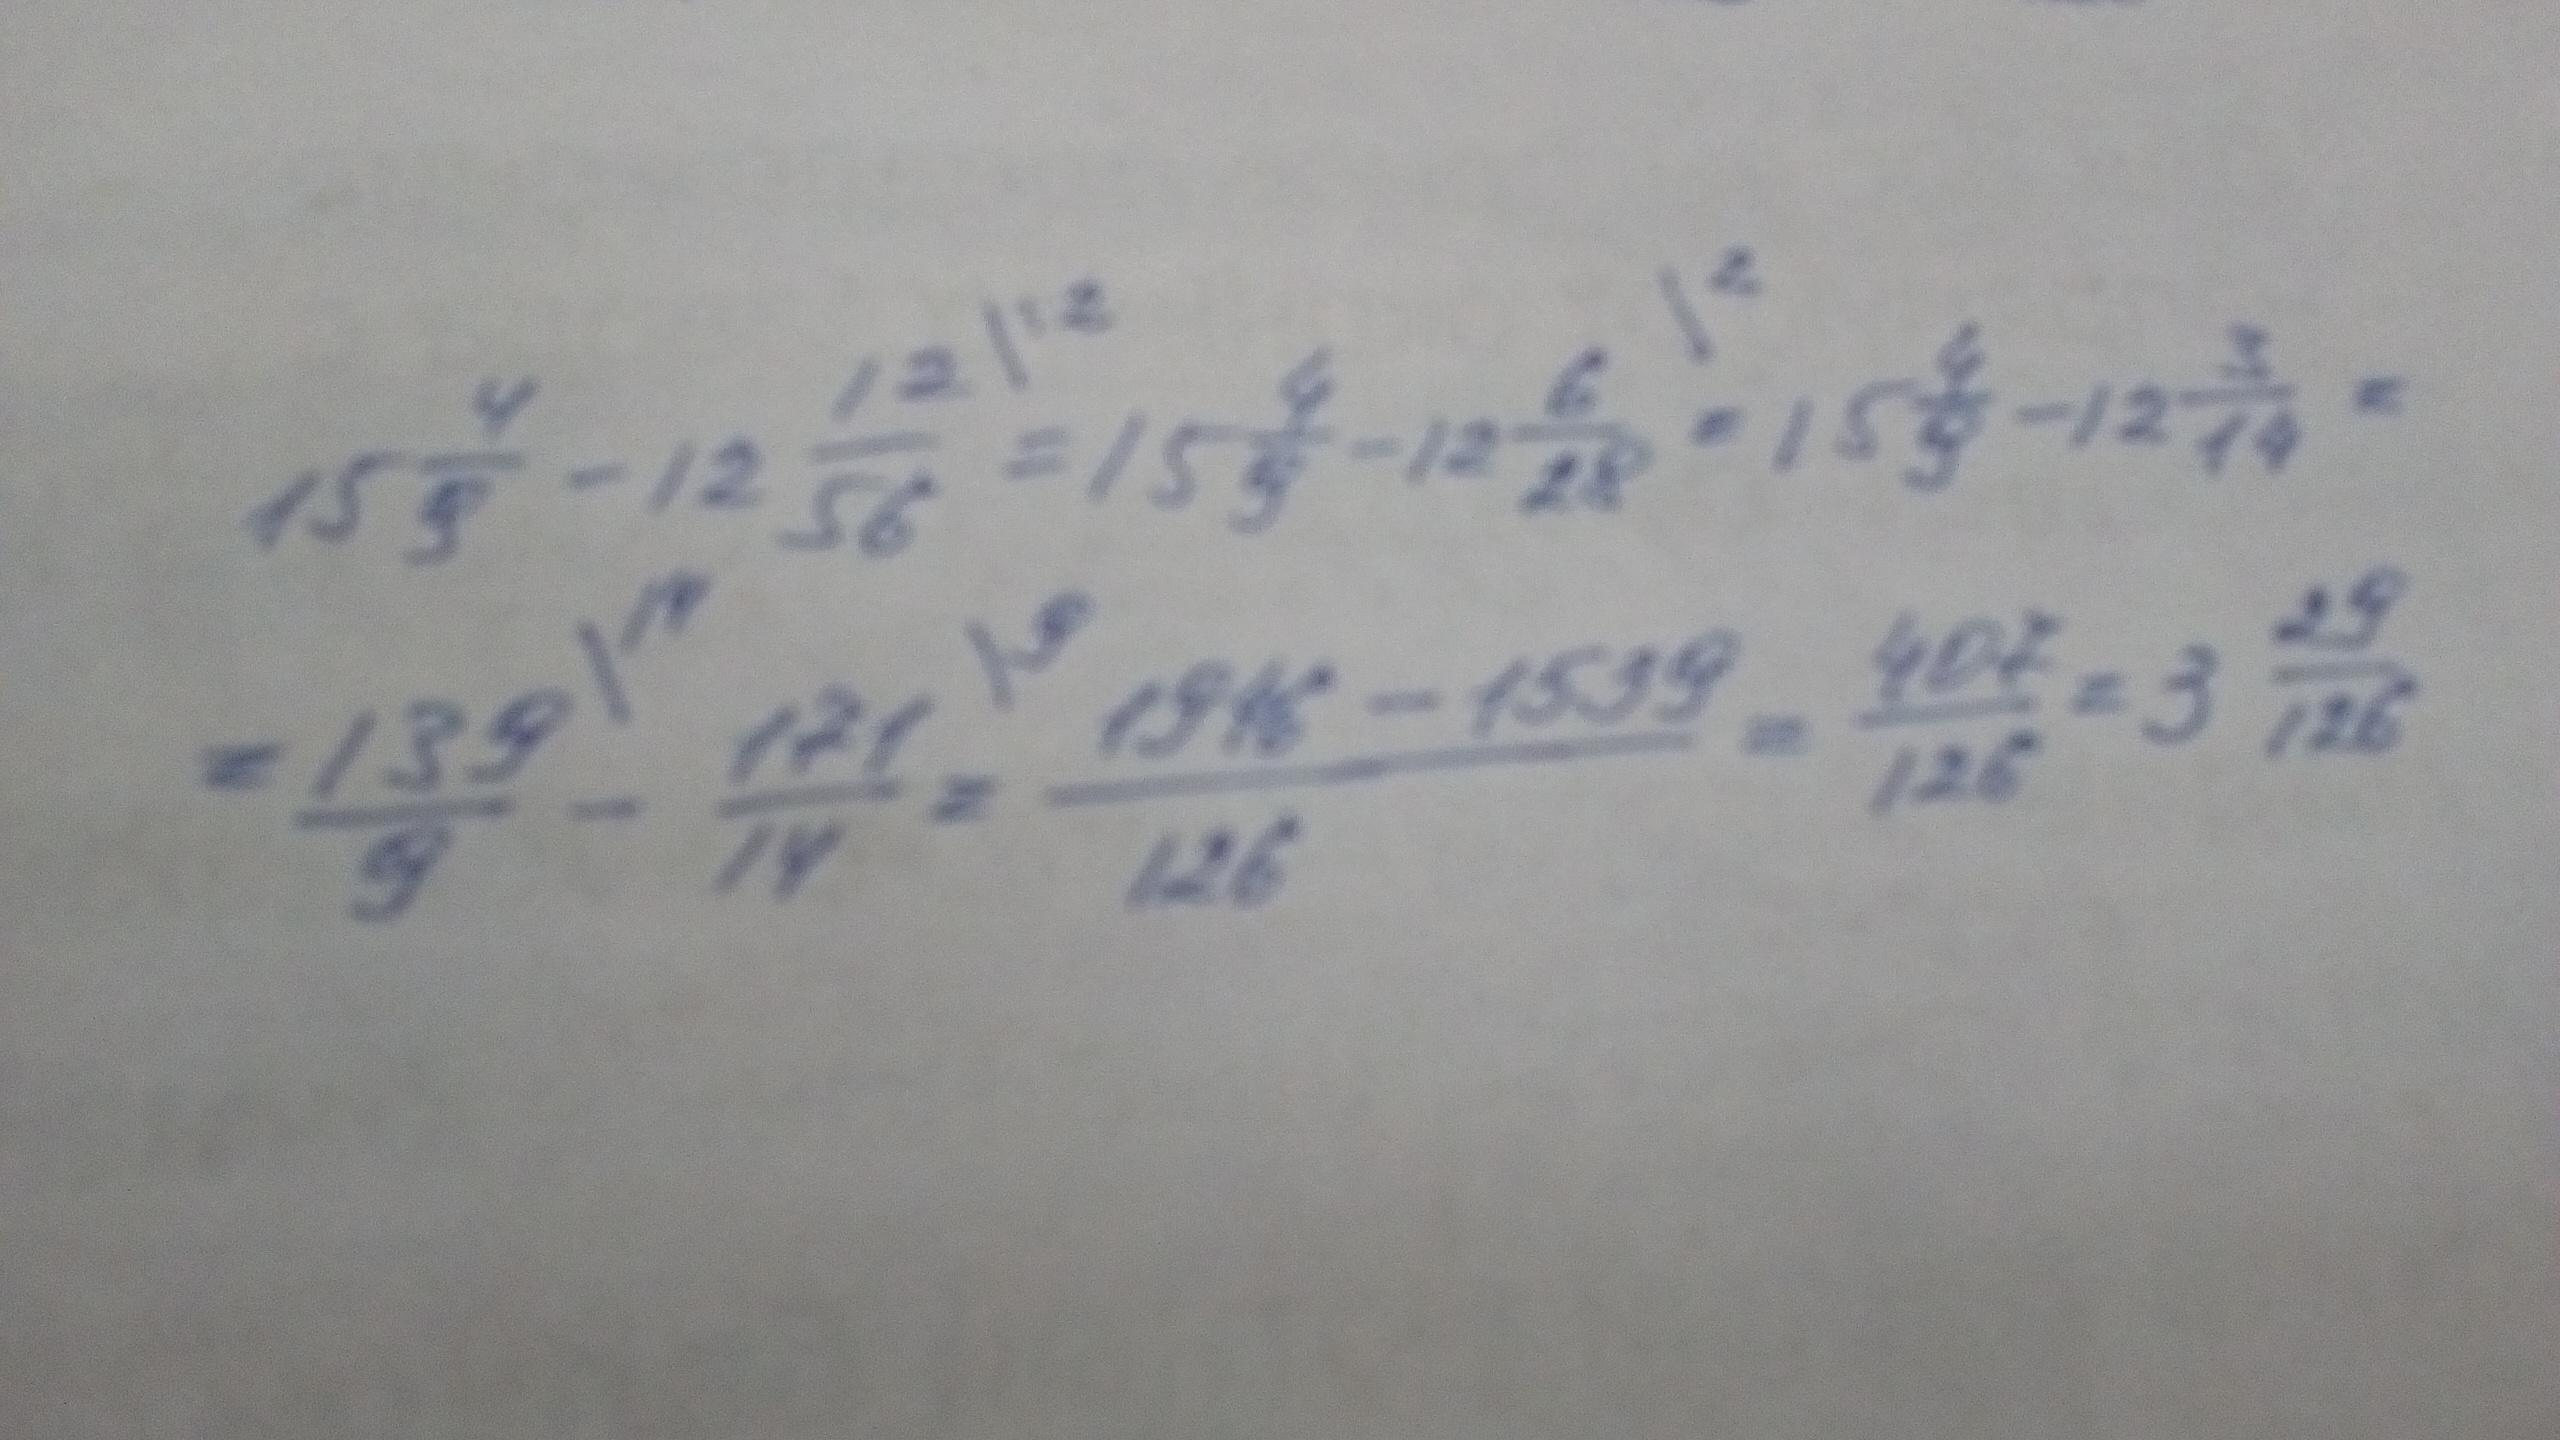 15 4/9 - 12 12/56 \:2 = 15 4/9 - 12 6/28 \2 = 15 4/9 - 12 3/14 =
= 139/9 \14 - 171/14 \9 = (1946 - 1539)/126 = 407/126 = 3 29/126